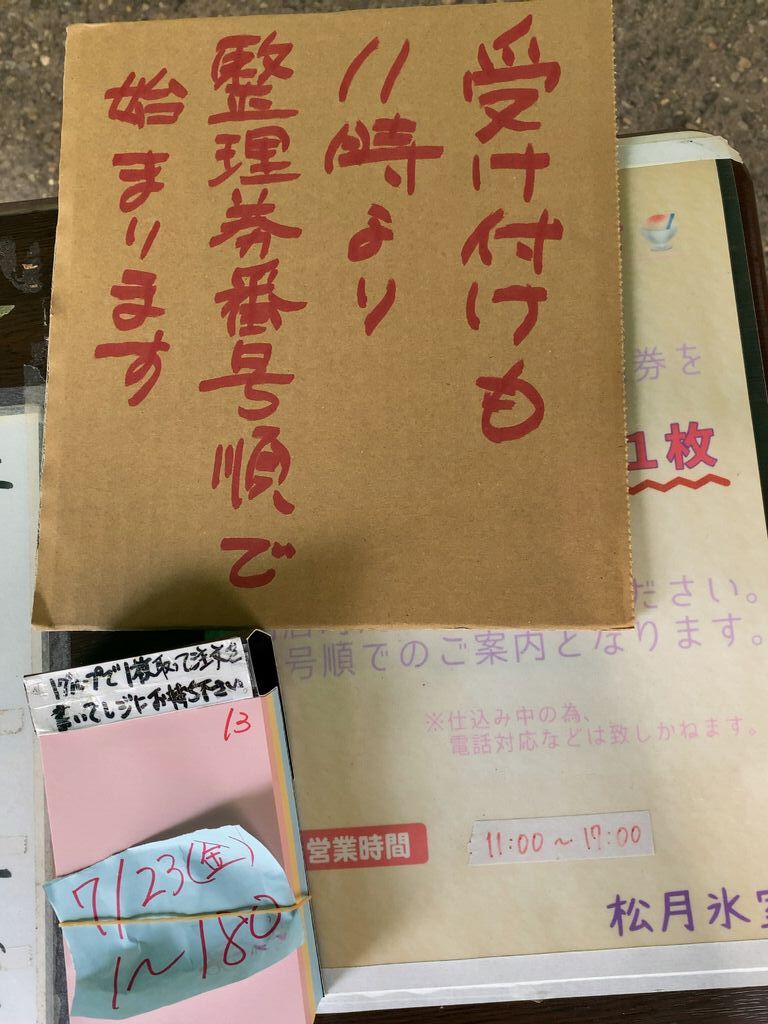 受け付けも
11時より
整理券番号順で
始まります
券を
1枚
ださい。
号順でのご案内となります。
※仕込み中の為、
電話対応などは致しかねます。
営業時間
11:00～17:00
松月氷室
1グループで1枚取って注文を
書いてレジにお持ち下さい。
13
7/23(金)
1～180